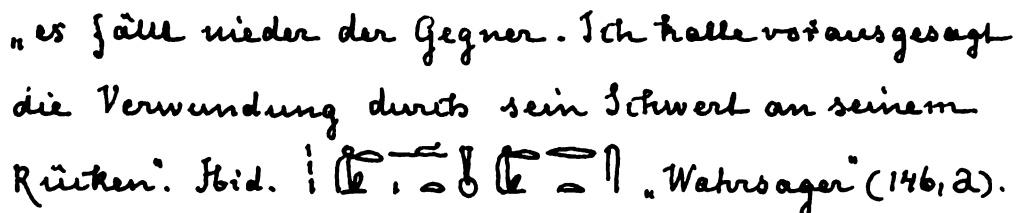 „es fällt nieder der Gegner. Ich hatte vorausgesagt
die Verwundung durch sein Schwert an seinem
Rücken“. Ibid. „Wahrsager“ (146, 2).